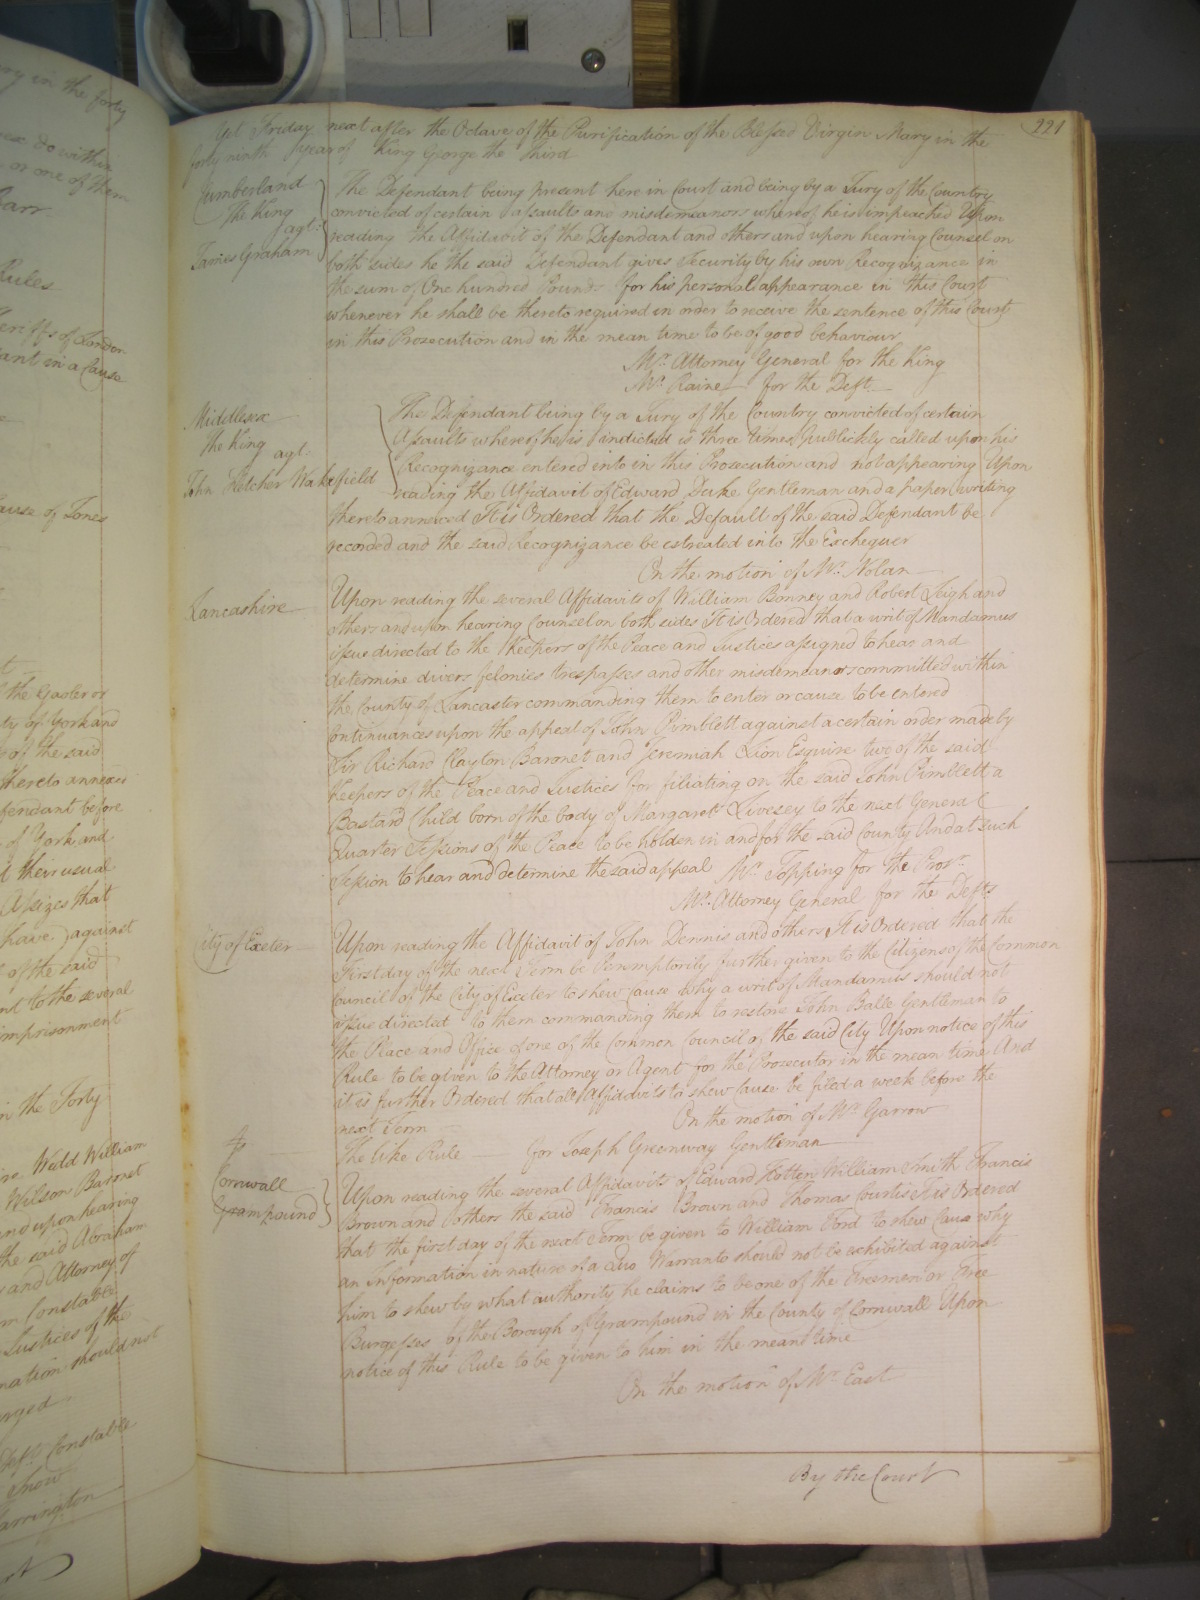 221
Yet Friday next after the Octave of the Purification of the Blessed Virgin Mary in the
forty ninth year of King George the Third
Cumberland
The King
agt.
James Graham
The Defendant being present here in Court and being by a Jury of the Country
convicted of certain assaults and misdemeanors whereof he is impeached Upon
reading the Affidavit of the Defendant and others and upon hearing Counsel on
both sides he the said Defendant gives Security by his own Recognizance in
the sum of One hundred Pounds for his personal appearance in this Court
whenever he shall be thereto required in order to receive the sentence of this Court
in this Prosecution and in the mean time to be of good behaviour
Mr. Attorney General for the King
Mr. Raine for the Deft.
Middlesex
The King
agt.
John Fletcher Wakefield
The Defendant being by a Jury of the Country convicted of certain
Assaults whereof he is indicted is three times Publickly called upon his
Recognizance entered into in this Prosecution and not appearing Upon
reading the Affidavit of Edward Duke Gentleman and a paper writing
thereto annexed It is Ordered that the Default of the said Defendant be
recorded and the said Recognizance be estreated into the Exchequer
On the motion of Mr. Nolan
Lancashire
Upon reading the several Affidavits of William Bonney and Robert Leigh and
others and upon hearing Counsel on both sides It is Ordered that a writ of Mandamus
issue directed to the Keepers of the Peace and Justices assigned to hear and
determine divers felonies trespasses and other misdemeanors committed within
the County of Lancaster commanding them to enter or cause to be entered
Continuances upon the appeal of John Pimblett against a certain order made by
Sir Richard Clayton Baronet and Jeremiah Lion Esquire two of the said
Keepers of the Peace and Justices for filiating on the said John Pimblett a
Bastard Child born of the body of Margaret Livesey to the next General
Quarter Sessions of the Peace to be holden in and for the said County And at such
Session to hear and determine the said appeal Mr. Topping for the Prosr.
Mr. Attorney General for the Defts
City of Exeter
Upon reading the Affidavit of John Dennis and others It is Ordered that the
First day of the next Term be Peremptorily further given to the Citizens of the Common
Council of the City of Exeter to shew cause why a writ of Mandamus should not
issue directed to them commanding them to restore John Balle Gentleman to
the Place and Office of one of the Common Council of the said City Upon notice of this
Rule to be given to the Attorney or Agent for the Prosecutor in the mean time And
it is further Ordered that all Affidavits to shew Cause be filed a week before the
next Term On the motion of Mr. Garrow
The like Rule for Joseph Greenway Gentleman
Cornwall
Grampound
Upon reading the several Affidavits of Edward Hotten William Smith Francis
Brown and others the said Francis Brown and Thomas Curtis It is Ordered
that the first day of the next Term be given to William Ford to shew Cause why
an Information in nature of a Quo Warranto should not be exhibited against
him to shew by what authority he claims to be one of the Freemen or Free
Burgesses of the Borough of Grampound in the County of Cornwall Upon
notice of this Rule to be given to him in the mean time
On the motion of Mr. East
By the Court